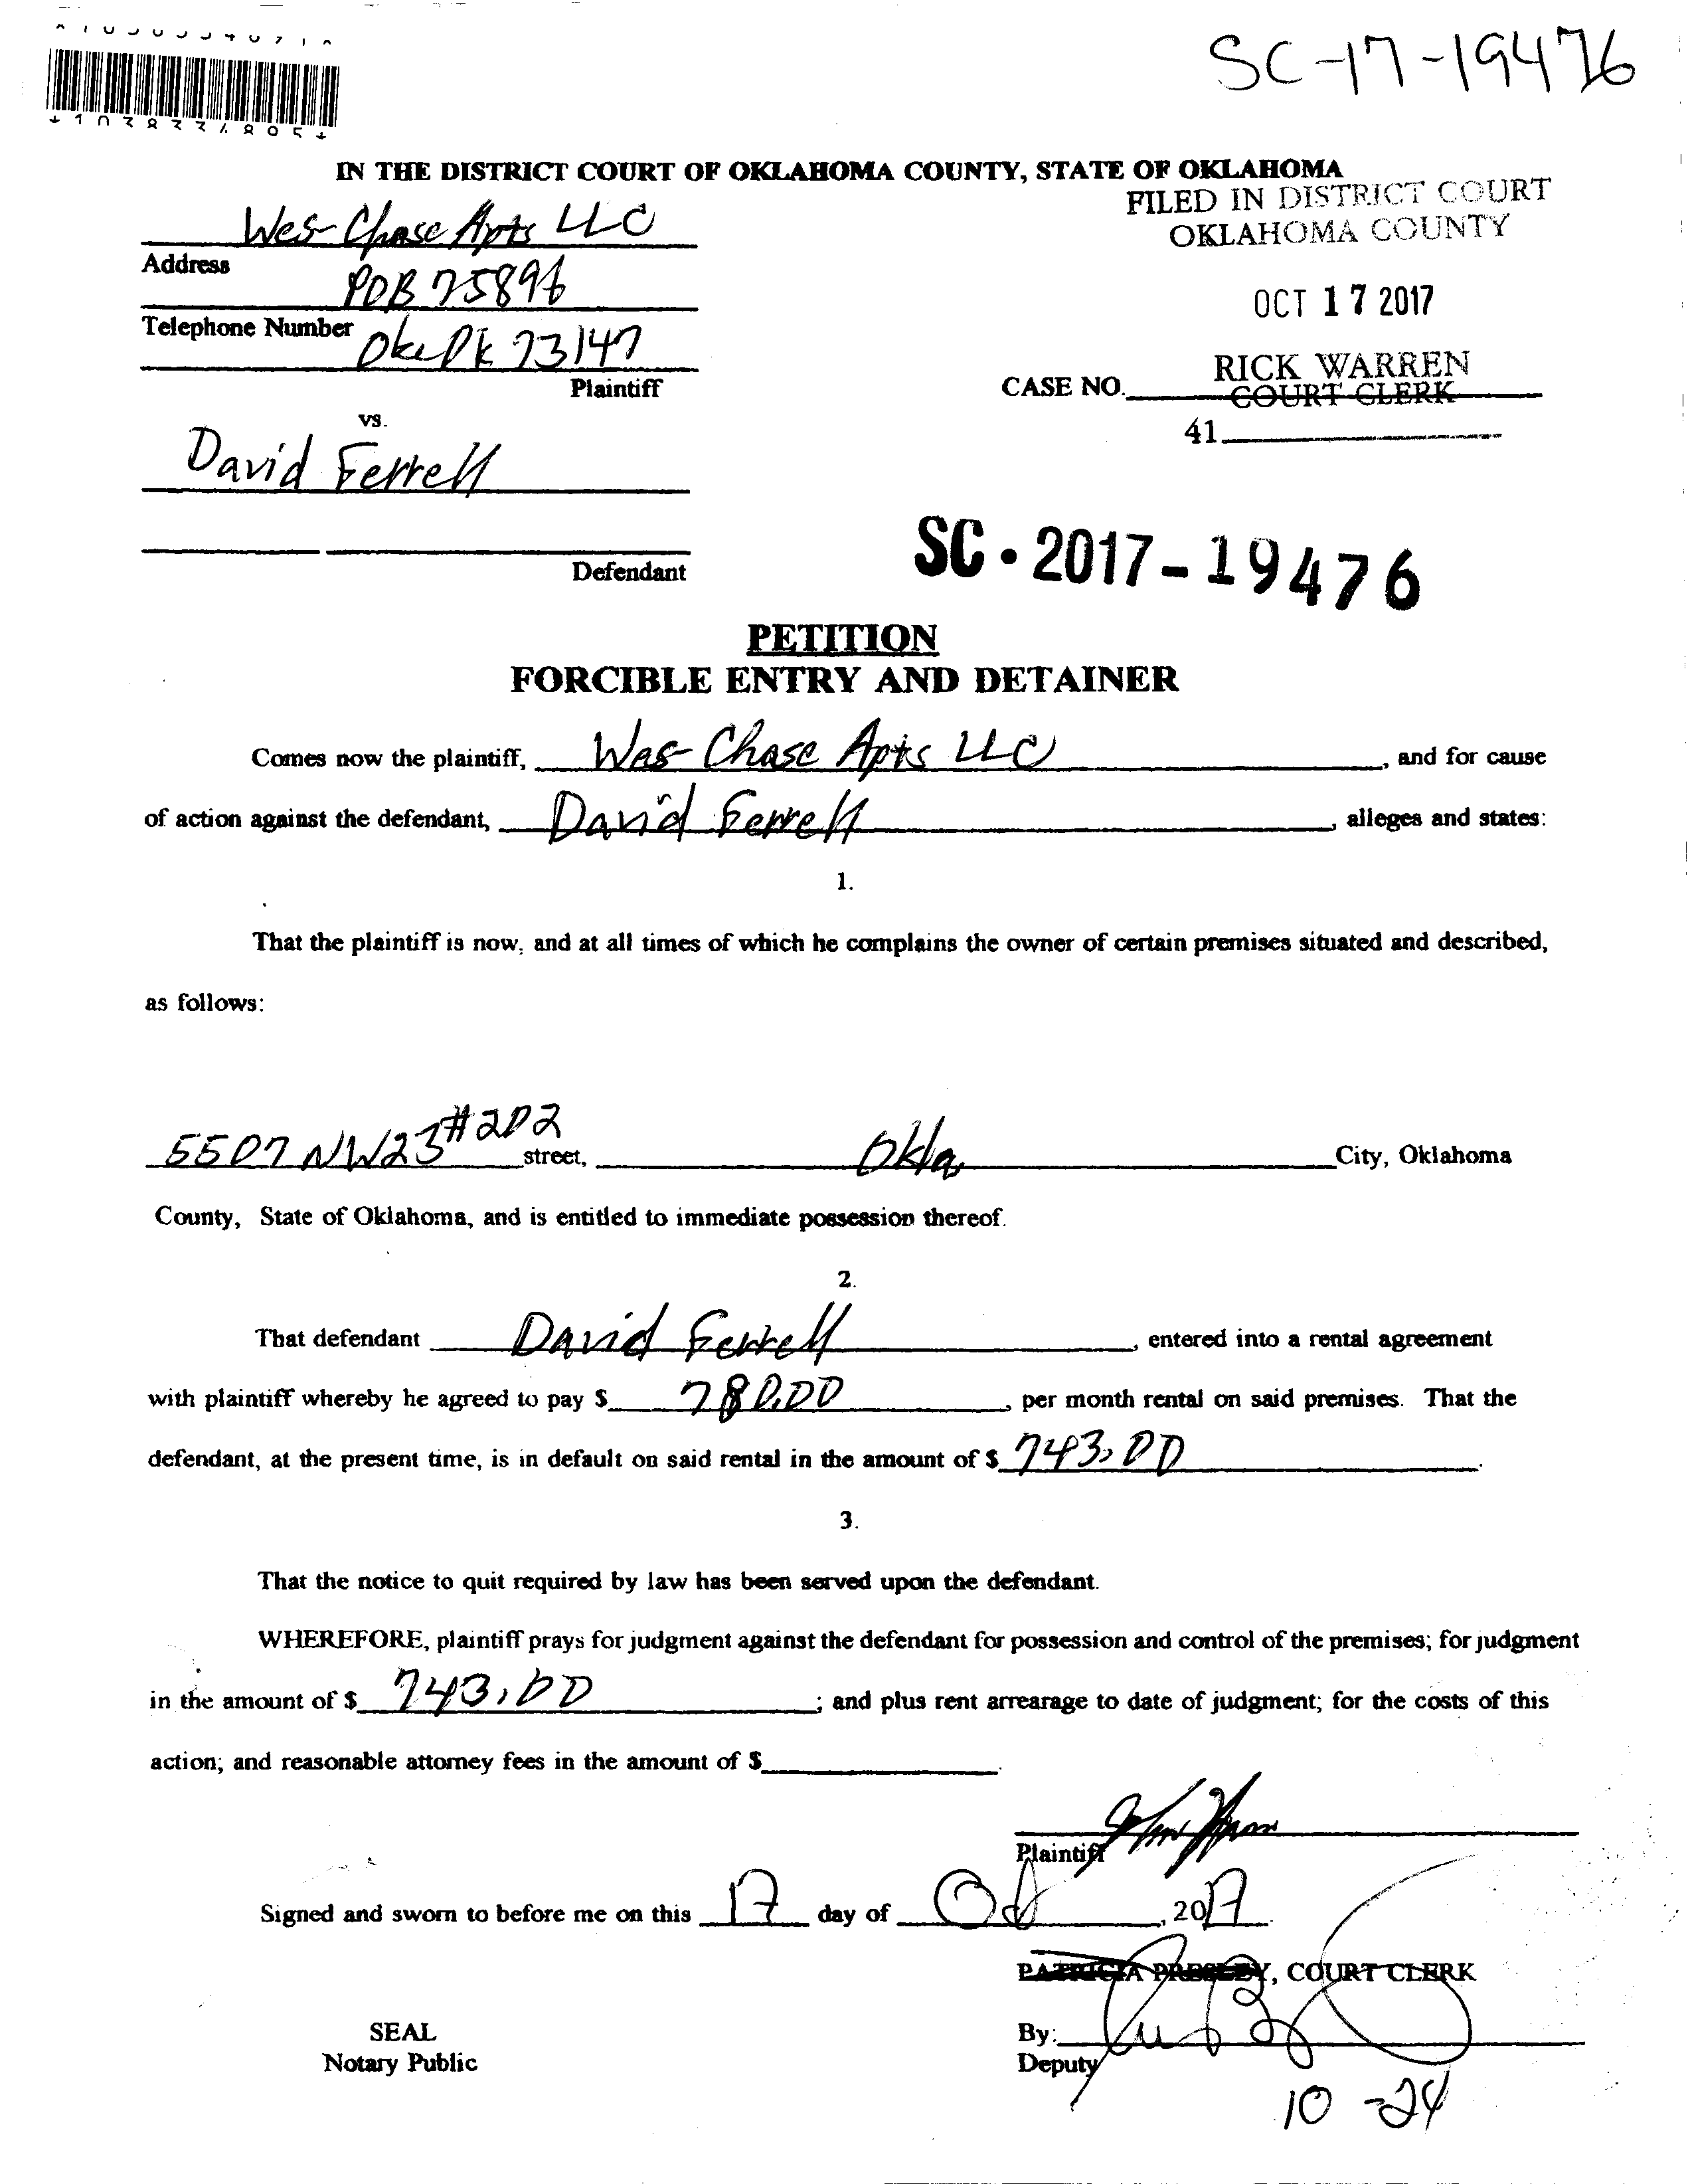 SC-17-19476
IN THE DISTRICT COURT OF OKLAHOMA COUNTY, STATE OF OKLAHOMA
FILED IN DISTRICT COURT
OKLAHOMA COUNTY
Wes-Chase Apts LLC
Address
POB 75896
OCT 17 2017
Telephone Number
Okc Ok 73147
Plaintiff
RICK WARREN
COURT CLERK
CASE NO.
vs.
41
David Ferrell
Defendant
SC-2017-19476
PETITION
FORCIBLE ENTRY AND DETAINER
Comes now the plaintiff, Wes-Chase Apts LLC, and for cause
of action against the defendant, David Ferrell, alleges and states:
1.
That the plaintiff is now, and at all times of which he complains the owner of certain premises situated and described,
as follows:
5507 NW23 #202 street, Okla City, Oklahoma
County, State of Oklahoma, and is entitled to immediate possession thereof.
2.
That defendant David Ferrell, entered into a rental agreement
with plaintiff whereby he agreed to pay $ 780.00, per month rental on said premises. That the
defendant, at the present time, is in default on said rental in the amount of $ 743.00.
3.
That the notice to quit required by law has been served upon the defendant.
WHEREFORE, plaintiff prays for judgment against the defendant for possession and control of the premises; for judgment
in the amount of $ 743.00; and plus rent arrearage to date of judgment; for the costs of this
action; and reasonable attorney fees in the amount of $
Plaintiff
Signed and sworn to before me on this 17 day of Oct, 2017.
PATRICIA PRESLEY, COURT CLERK
SEAL
By:
Notary Public
Deputy
10-24